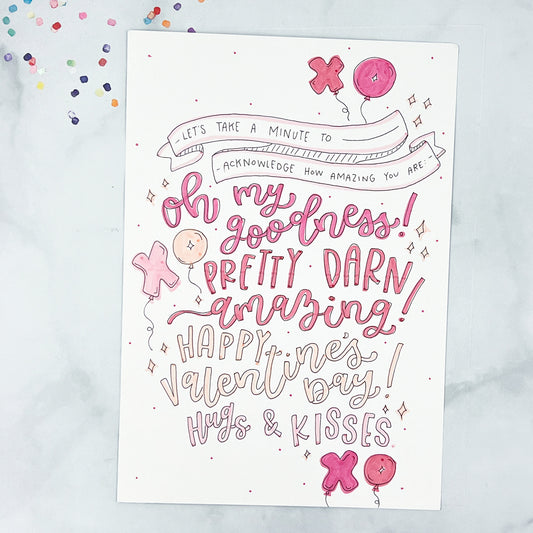 X O
-LET'S TAKE A MINUTE TO
-ACKNOWLEDGE HOW AMAZING YOU ARE:-
oh my
goodness!
PRETTY DARN
amazing!
X O
HAPPY
Valentine's
Day!
Hugs & KISSES
X O